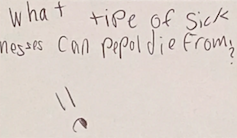 What tipe of Sick
nesses can pepol die from?